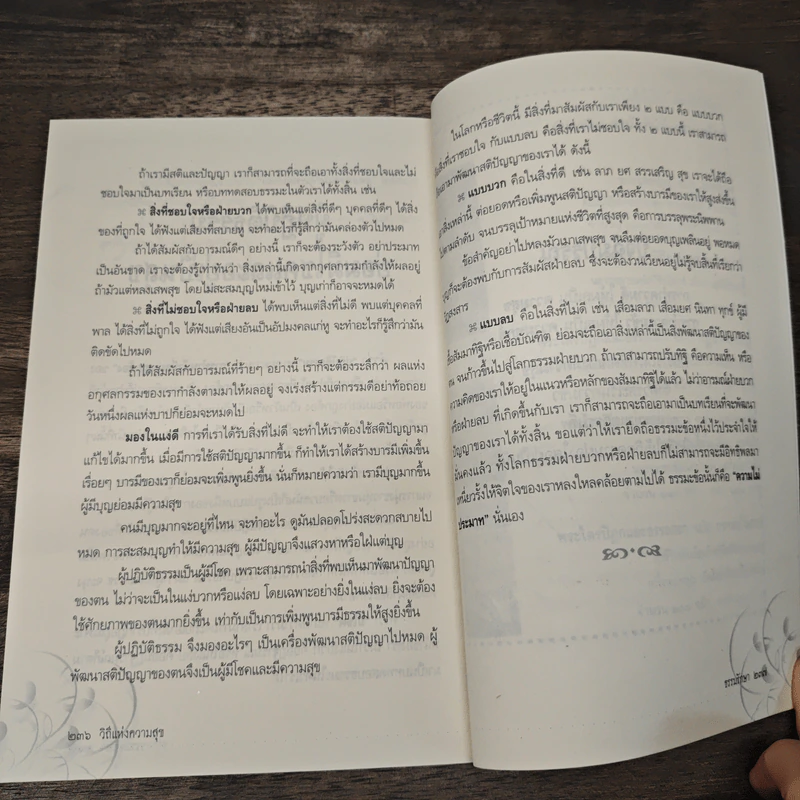 ถ้าเรามีสติและปัญญา เราก็สามารถที่จะถือเอาทั้งสิ่งที่ชอบใจและไม่
ชอบใจมาเป็นบทเรียน หรือบททดสอบธรรมะในตัวเราได้ทั้งสิ้น เช่น
⌘ สิ่งที่ชอบใจหรือฝ่ายบวก ได้พบเห็นแต่สิ่งที่ดีๆ บุคคลที่ดีๆ ได้สิ่ง
ของที่ถูกใจ ได้ฟังแต่เสียงที่สบายหู จะทำอะไรก็รู้สึกว่ามันคล่องตัวไปหมด
ถ้าได้สัมผัสกับอารมณ์ดีๆ อย่างนี้ เราก็จะต้องระวังตัว อย่าประมาท
เป็นอันขาด เราจะต้องรู้เท่าทันว่า สิ่งเหล่านี้เกิดจากกุศลกรรมกำลังให้ผลอยู่
ถ้ามัวแต่หลงเสพสุข โดยไม่สะสมบุญใหม่เข้าไว้ บุญเก่าก็อาจจะหมดได้
⌘ สิ่งที่ไม่ชอบใจหรือฝ่ายลบ ได้พบเห็นแต่สิ่งที่ไม่ดี พบแต่บุคคลที่
พาล ได้สิ่งที่ไม่ถูกใจ ได้ฟังแต่เสียงอันเป็นอัปมงคลแก่หู จะทำอะไรก็รู้สึกว่ามัน
ติดขัดไปหมด
ถ้าได้สัมผัสกับอารมณ์ที่ร้ายๆ อย่างนี้ เราก็จะต้องระลึกว่า ผลแห่ง
อกุศลกรรมของเรากำลังตามมาให้ผลอยู่ จงเร่งสร้างแต่กรรมดีอย่าท้อถอย
วันหนึ่งผลแห่งบาปก็ย่อมจะหมดไป
มองในแง่ดี การที่เราได้รับสิ่งที่ไม่ดี จะทำให้เราต้องใช้สติปัญญามา
แก้ไขได้มากขึ้น เมื่อมีการใช้สติปัญญามากขึ้น ก็ทำให้เราได้สร้างบารมีเพิ่มขึ้น
เรื่อยๆ บารมีของเราก็ย่อมจะเพิ่มพูนยิ่งขึ้น นั่นก็หมายความว่า เรามีบุญมากขึ้น
ผู้มีบุญย่อมมีความสุข
คนมีบุญมากจะอยู่ที่ไหน จะทำอะไร ดูมันปลอดโปร่งสะดวกสบายไป
หมด การสะสมบุญทำให้มีความสุข ผู้มีปัญญาจึงแสวงหาหรือใฝ่แต่บุญ
ผู้ปฏิบัติธรรมเป็นผู้มีโชค เพราะสามารถนำสิ่งที่พบเห็นมาพัฒนาปัญญา
ของตน ไม่ว่าจะเป็นในแง่บวกหรือแง่ลบ โดยเฉพาะอย่างยิ่งในแง่ลบ ยิ่งจะต้อง
ใช้ศักยภาพของตนมากยิ่งขึ้น เท่ากับเป็นการเพิ่มพูนบารมีธรรมให้สูงยิ่งขึ้น
ผู้ปฏิบัติธรรม จึงมองอะไรๆ เป็นเครื่องพัฒนาสติปัญญาไปหมด ผู้
พัฒนาสติปัญญาของตนจึงเป็นผู้มีโชคและมีความสุข
๒๓๖ วิถีแห่งความสุข
ในโลกหรือชีวิตนี้ มีสิ่งที่มาสัมผัสกับเราเพียง ๒ แบบ คือ แบบบวก
สิ่งที่เราชอบใจ กับแบบลบ คือสิ่งที่เราไม่ชอบใจ ทั้ง ๒ แบบนี้ เราสามารถ
เอามาพัฒนาสติปัญญาของเราได้ ดังนี้
⌘ แบบบวก คือในสิ่งที่ดี เช่น ลาภ ยศ สรรเสริญ สุข เราจะได้ถือ
สิ่งเหล่านี้ ต่อยอดหรือเพิ่มพูนสติปัญญา หรือสร้างบารมีของเราให้สูงส่งขึ้น
ตามลำดับ จนบรรลุเป้าหมายแห่งชีวิตที่สูงสุด คือการบรรลุพระนิพพาน
ข้อสำคัญอย่าไปหลงมัวเมาเสพสุข จนลืมต่อยอดบุญเพลินอยู่ พอหมด
บุญก็จะต้องพบกับการสัมผัสฝ่ายลบ ซึ่งจะต้องวนเวียนอยู่ไม่รู้จบสิ้นที่เรียกว่า
สงสาร
⌘ แบบลบ คือในสิ่งที่ไม่ดี เช่น เสื่อมลาภ เสื่อมยศ นินทา ทุกข์ ผู้มี
สัมมาทิฐิหรือเชื้อบัณฑิต ย่อมจะถือเอาสิ่งเหล่านี้เป็นสิ่งพัฒนาสติปัญญาของ
จนก้าวขึ้นไปสู่โลกธรรมฝ่ายบวก ถ้าเราสามารถปรับทิฐิ คือความเห็น หรือ
ความคิดของเราให้อยู่ในแนวหรือหลักของสัมมาทิฐิได้แล้ว ไม่ว่าอารมณ์ฝ่ายบวก
หรือฝ่ายลบ ที่เกิดขึ้นกับเรา เราก็สามารถจะถือเอามาเป็นบทเรียนที่จะพัฒนา
ปัญญาของเราได้ทั้งสิ้น ขอแต่ว่าให้เรายึดถือธรรมะข้อหนึ่งไว้ประจำใจให้
มั่นคงแล้ว ทั้งโลกธรรมฝ่ายบวกหรือฝ่ายลบก็ไม่สามารถจะมีอิทธิพลมา
เหนี่ยวรั้งให้จิตใจของเราหลงใหลคล้อยตามไปได้ ธรรมะข้อนั้นก็คือ “ความไม่
ประมาท” นั่นเอง
ธรรมรักษา ๒๓๗